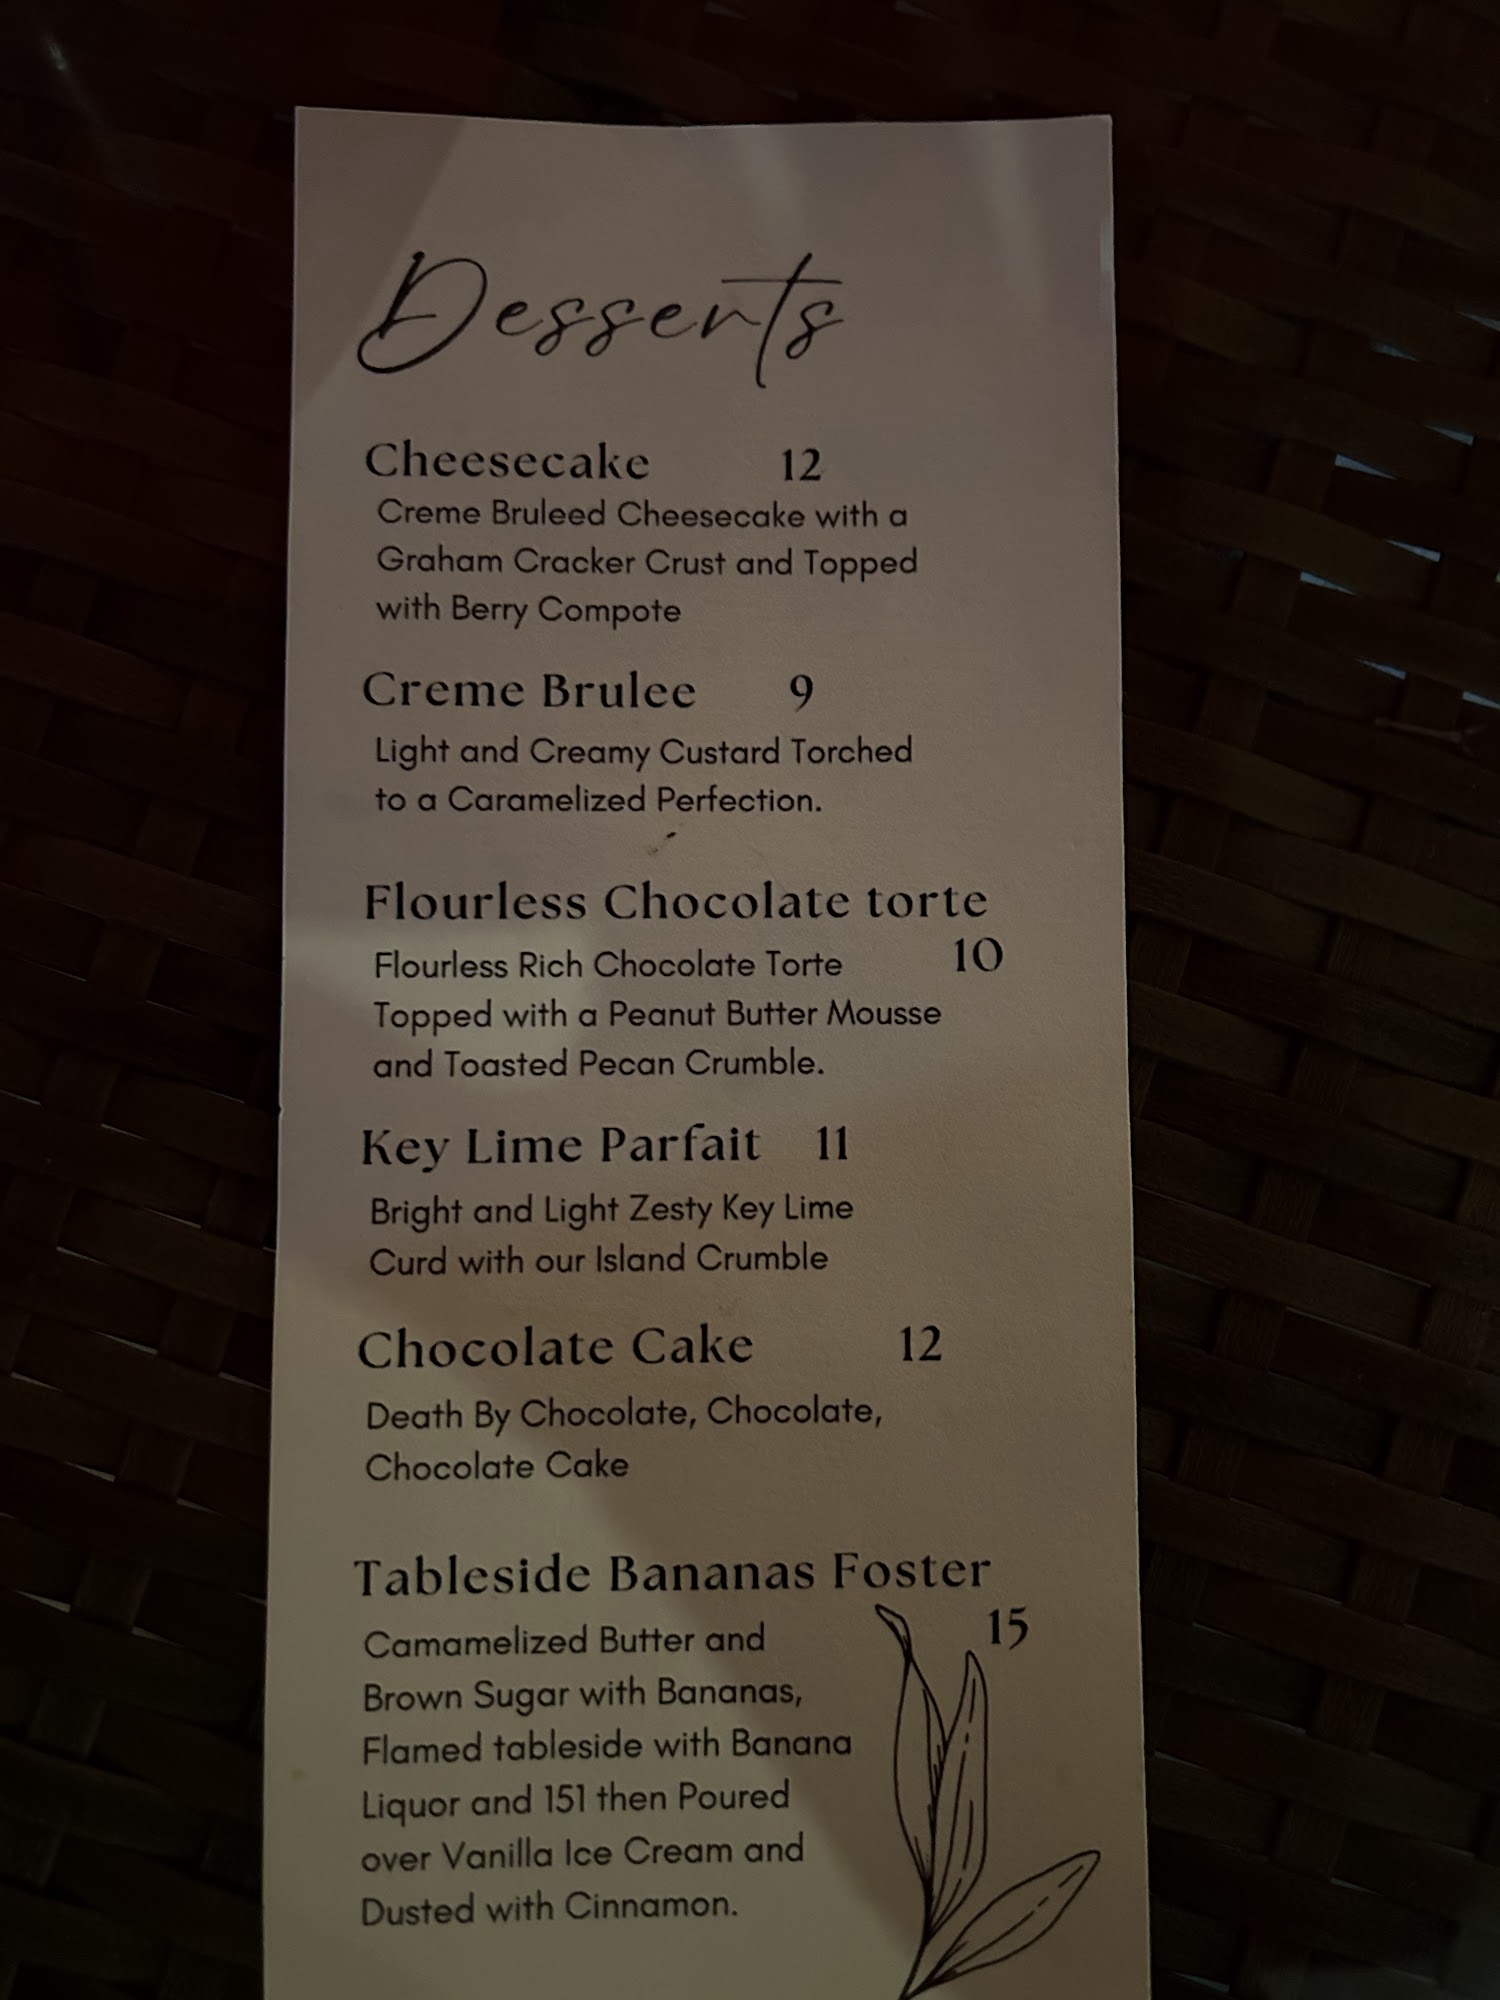 Desserts
Cheesecake 12
Creme Bruleed Cheesecake with a
Graham Cracker Crust and Topped
with Berry Compote
Creme Brulee 9
Light and Creamy Custard Torched
to a Caramelized Perfection.
Flourless Chocolate torte
Flourless Rich Chocolate Torte 10
Topped with a Peanut Butter Mousse
and Toasted Pecan Crumble.
Key Lime Parfait 11
Bright and Light Zesty Key Lime
Curd with our Island Crumble
Chocolate Cake 12
Death By Chocolate, Chocolate,
Chocolate Cake
Tableside Bananas Foster
15
Camamelized Butter and
Brown Sugar with Bananas,
Flamed tableside with Banana
Liquor and 151 then Poured
over Vanilla Ice Cream and
Dusted with Cinnamon.